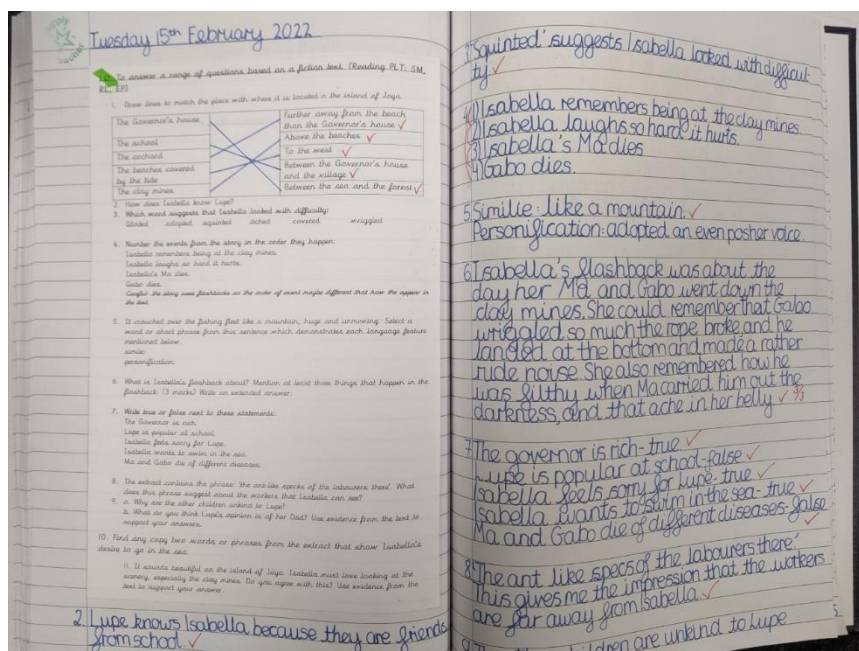 Tuesday 15th February 2022
L.O. To answer a range of questions based on a fiction text. (Reading PLT: SM,
RL, EP)
1. Draw lines to match the place with where it is located n the island of Joya.
The Governor's house
The school
The orchard
The beaches covered
by the tide
The clay mines
Further away from the beach
than the Governor's house
Above the beaches
To the west
Between the Governor's house
and the village
Between the sea and the forest
2. How does Isabella know Lupe?
3. Which word suggests that Isabella looked with difficulty:
Glinted adopted squinted itched covered wriggled
4. Number the events from the story in the order they happen:
Isabella remembers being at the clay mines.
Isabella laughs so hard it hurts.
Isabella's Ma dies.
Gabo dies.
Careful the story uses flashbacks so the order of event maybe different that how the appear in
the text.
5. It crouched over the fishing fleet like a mountain, huge and unmoving. Select a
word or short phrase from this sentence which demonstrates each language feature
mentioned below.
simile
personification
6. What is Isabella's flashback about? Mention at least three things that happen in the
flashback. (3 marks) Write an extended answer.
7. Write true or false next to these statements:
The Governor is rich.
Lupe is popular at school.
Isabella feels sorry for Lupe.
Isabella wants to swim in the sea.
Ma and Gabo die of different diseases.
8. The extract contains the phrase: 'the ant-like specks of the labourers there'. What
does this phrase suggest about the workers that Isabella can see?
9. a. Why are the other children unkind to Lupe?
b. What do you think Lupe's opinion is of her Dad? Use evidence from the text to
support your answers.
10. Find any copy two words or phrases from the extract that show Isabella's
desire to go in the sea.
11. It sounds beautiful on the island of Joya. Isabella must love looking at the
scenery, especially the clay mines. Do you agree with this? Use evidence from the
text to support your answer.
2. Lupe knows Isabella because they are friends
from school.
3 'Squinted' suggests Isabella looked with difficul-
ty.
4 1) Isabella remembers being at the clay mines
2) Isabella laughs so hard it hurts.
3) Isabella's Ma dies
4) Gabo dies.
5 Similie: like a mountain.
Personification: adopted an even posher voice.
6) Isabella's flashback was about the
day her Ma and Gabo went down the
clay mines. She could remember that Gabo
wriggled so much the rope broke and he
landed at the bottom and made a rather
rude noise. She also remembered how he
was filthy when Ma carried him out the
darkness, and that ache in her belly
7 The governor is rich-true
Lupe is popular at school-false
Isabella feels sorry for Lupe-true
Isabella wants to swim in the sea-true
Ma and Gabo die of different diseases-false
8 'The ant like specs of the labourers there.'
This gives me the impression that the workers
are far away from Isabella
children are unkind to Lupe